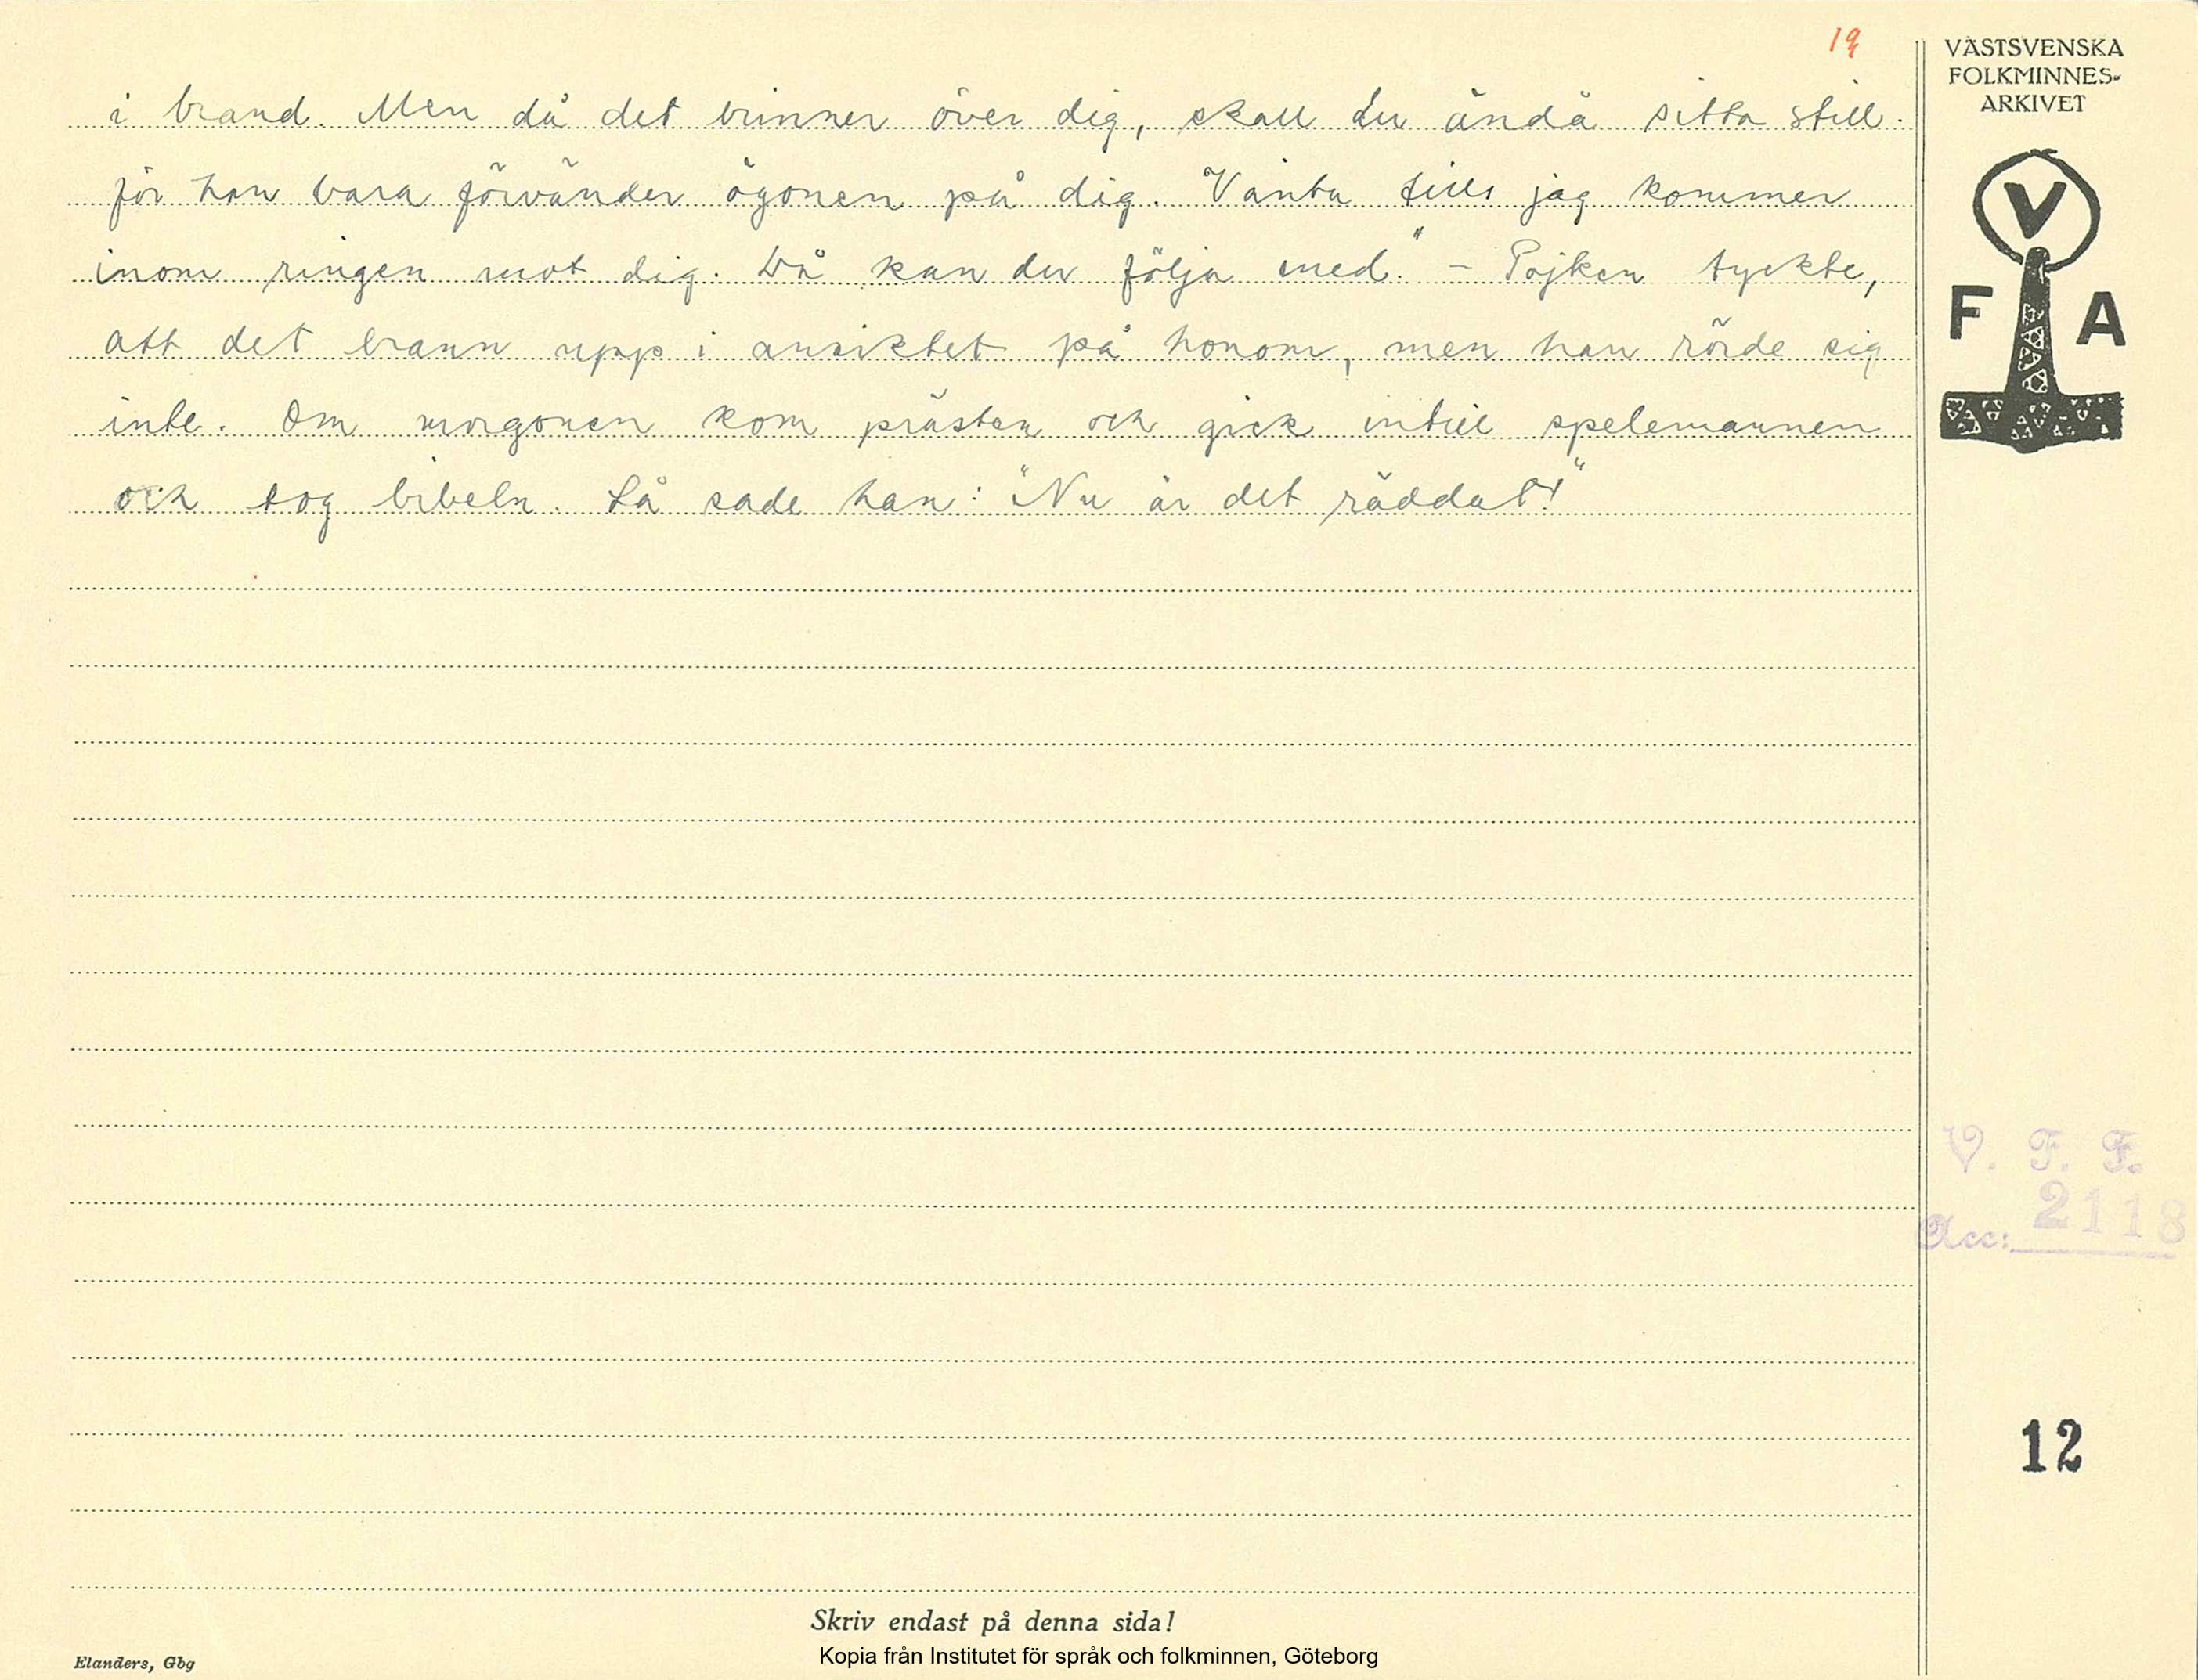 19
i brand. Men då det brinner över dig, skall du ändå sitta still.
för han bara förvänder ögonen på dig. Vänta tills jag kommer
inom ringen mot dig. Då kan du följa med." – Pojken tyckte,
att det brann upp i ansiktet på honom, men han rörde sig
inte. Om morgonen kom prästen och gick intill spelemannen
och tog bibeln. Så sade han: "Nu är det räddat!"
VÄSTSVENSKA
FOLKMINNES-
ARKIVET
V
F A
V. F. F.
Acc: 2118
12
Skriv endast på denna sida!
Kopia från Institutet för språk och folkminnen, Göteborg
Elanders, Gbg